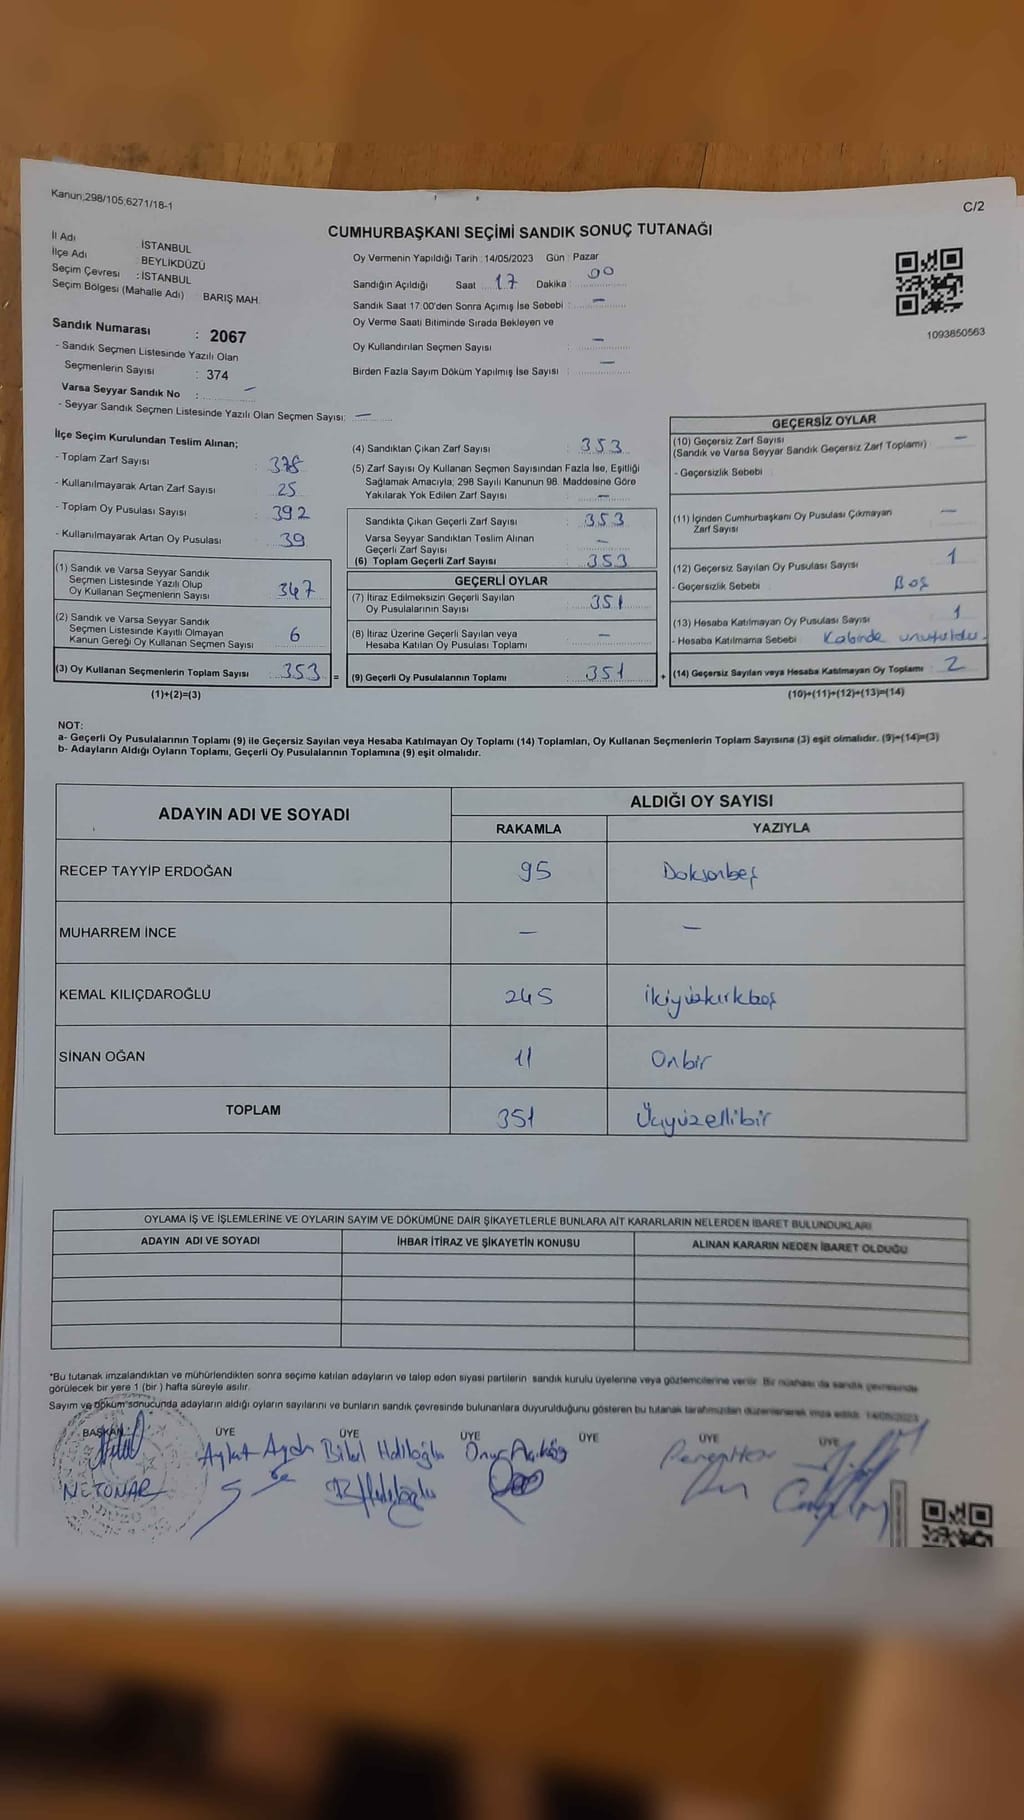 Kanun;298/105;6271/18-1
C/2
CUMHURBAŞKANI SEÇİMİ SANDIK SONUÇ TUTANAĞI
İl Adı : İSTANBUL
İlçe Adı : BEYLİKDÜZÜ
Seçim Çevresi : İSTANBUL
Seçim Bölgesi (Mahalle Adı) BARIŞ MAH.
Sandık Numarası : 2067
- Sandık Seçmen Listesinde Yazılı Olan
Seçmenlerin Sayısı : 374
Varsa Seyyar Sandık No : —
- Seyyar Sandık Seçmen Listesinde Yazılı Olan Seçmen Sayısı: —
Oy Vermenin Yapıldığı Tarih : 14/05/2023 Gün : Pazar
Sandığın Açıldığı Saat 17 Dakika 00
Sandık Saat 17:00'den Sonra Açımış İse Sebebi : —
Oy Verme Saati Bitiminde Sırada Bekleyen ve
Oy Kullandırılan Seçmen Sayısı : —
Birden Fazla Sayım Döküm Yapılmış İse Sayısı : —
1093850563
İlçe Seçim Kurulundan Teslim Alınan;
- Toplam Zarf Sayısı : 378
- Kullanılmayarak Artan Zarf Sayısı : 25
- Toplam Oy Pusulası Sayısı : 392
- Kullanılmayarak Artan Oy Pusulası : 39
(1) Sandık ve Varsa Seyyar Sandık
Seçmen Listesinde Yazılı Olup
Oy Kullanan Seçmenlerin Sayısı 347
(2) Sandık ve Varsa Seyyar Sandık
Seçmen Listesinde Kayıtlı Olmayan
Kanun Gereği Oy Kullanan Seçmen Sayısı 6
(3) Oy Kullanan Seçmenlerin Toplam Sayısı 353 =
(1)+(2)=(3)
(4) Sandıktan Çıkan Zarf Sayısı : 353
(5) Zarf Sayısı Oy Kullanan Seçmen Sayısından Fazla İse, Eşitliği
Sağlamak Amacıyla; 298 Sayılı Kanunun 98. Maddesine Göre
Yakılarak Yok Edilen Zarf Sayısı : —
Sandıkta Çıkan Geçerli Zarf Sayısı : 353
Varsa Seyyar Sandıktan Teslim Alınan
Geçerli Zarf Sayısı : —
(6) Toplam Geçerli Zarf Sayısı : 353
GEÇERLİ OYLAR
(7) İtiraz Edilmeksizin Geçerli Sayılan
Oy Pusulalarının Sayısı : 351
(8) İtiraz Üzerine Geçerli Sayılan veya
Hesaba Katılan Oy Pusulası Toplamı : —
(9) Geçerli Oy Pusulalarının Toplamı : 351 +
GEÇERSİZ OYLAR
(10) Geçersiz Zarf Sayısı —
(Sandık ve Varsa Seyyar Sandık Geçersiz Zarf Toplamı)
- Geçersizlik Sebebi
(11) İçinden Cumhurbaşkanı Oy Pusulası Çıkmayan —
Zarf Sayısı
(12) Geçersiz Sayılan Oy Pusulası Sayısı 1
- Geçersizlik Sebebi Boş
(13) Hesaba Katılmayan Oy Pusulası Sayısı 1
- Hesaba Katılmama Sebebi Kabinde unutuldu.
(14) Geçersiz Sayılan veya Hesaba Katılmayan Oy Toplamı 2
(10)+(11)+(12)+(13)=(14)
NOT:
a- Geçerli Oy Pusulalarının Toplamı (9) ile Geçersiz Sayılan veya Hesaba Katılmayan Oy Toplamı (14) Toplamları, Oy Kullanan Seçmenlerin Toplam Sayısına (3) eşit olmalıdır. (9)+(14)=(3)
b- Adayların Aldığı Oyların Toplamı, Geçerli Oy Pusulalarının Toplamına (9) eşit olmalıdır.
ADAYIN ADI VE SOYADI ALDIĞI OY SAYISI
RAKAMLA YAZIYLA
RECEP TAYYİP ERDOĞAN 95 Doksanbeş
MUHARREM İNCE — —
KEMAL KILIÇDAROĞLU 245 İkiyüzkırkbeş
SİNAN OĞAN 11 Onbir
TOPLAM 351 Üçyüzellibir
OYLAMA İŞ VE İŞLEMLERİNE VE OYLARIN SAYIM VE DÖKÜMÜNE DAİR ŞİKAYETLERLE BUNLARA AİT KARARLARIN NELERDEN İBARET BULUNDUKLARI
ADAYIN ADI VE SOYADI İHBAR İTİRAZ VE ŞİKAYETİN KONUSU ALINAN KARARIN NEDEN İBARET OLDUĞU
*Bu tutanak imzalandıktan ve mühürlendikten sonra seçime katılan adayların ve talep eden siyasi partilerin sandık kurulu üyelerine veya gözlemcilerine verilir. Bir nüshası da sandık çevresinde
görülecek bir yere 1 (bir ) hafta süreyle asılır.
Sayım ve döküm sonucunda adayların aldığı oyların sayılarını ve bunların sandık çevresinde bulunanlara duyurulduğunu gösteren bu tutanak tarafımızdan düzenlenerek imza edildi. 14/05/2023
BAŞKAN ÜYE ÜYE ÜYE ÜYE ÜYE ÜYE